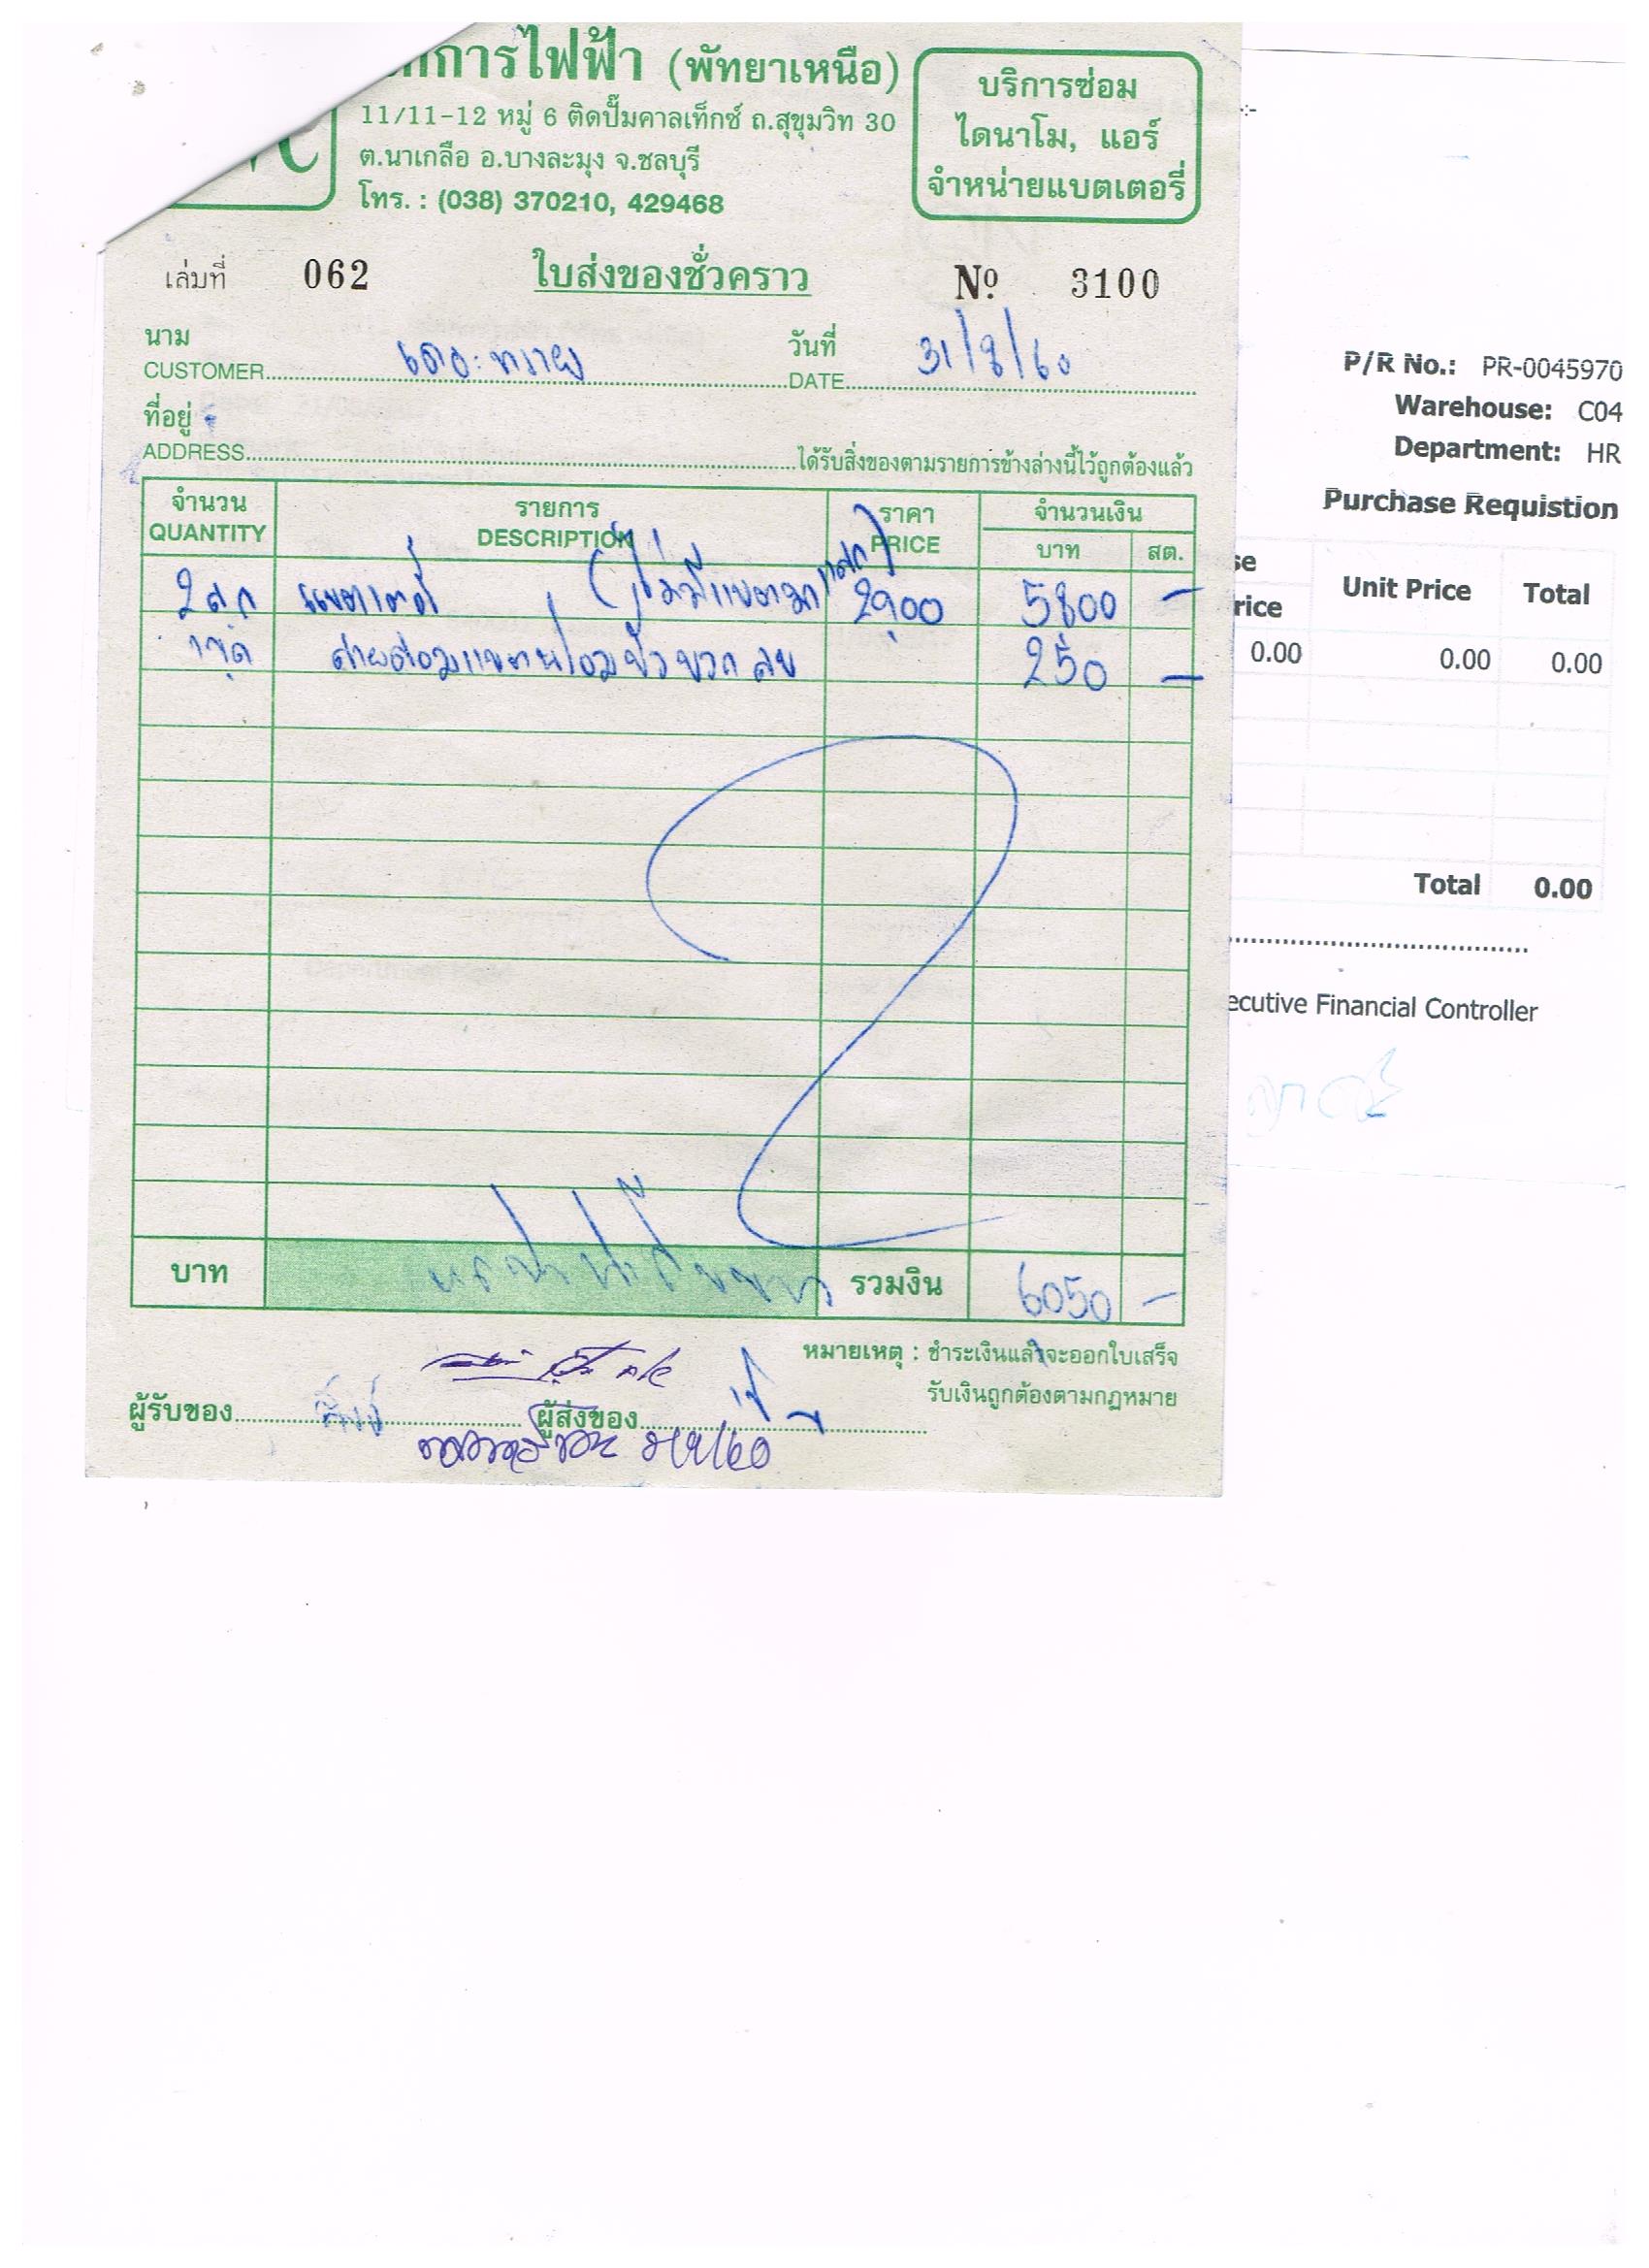 การไฟฟ้า (พัทยาเหนือ)
11/11-12 หมู่ 6 ติดปั๊มคาลเท็กซ์ ถ.สุขุมวิท 30
ต.นาเกลือ อ.บางละมุง จ.ชลบุรี
โทร. : (038) 370210, 429468
บริการซ่อม
ไดนาโม, แอร์
จำหน่ายแบตเตอรี่
เล่มที่ 062 ใบส่งของชั่วคราว Nº 3100
นาม วันที่
CUSTOMER เดอะทราย DATE 31/8/60
ที่อยู่
ADDRESS ได้รับสิ่งของตามรายการข้างล่างนี้ไว้ถูกต้องแล้ว
จำนวน รายการ ราคา จำนวนเงิน
QUANTITY DESCRIPTION PRICE บาท สต.
2 ลูก แบตเตอรี่ (ไม่มีแบตมาแลก) 2900 5800 -
1 ชุด สายต่อวงแบตพร้อมขั้วบวกลบ 250 -
บาท หกพันห้าสิบบาท รวมเงิน 6050 -
หมายเหตุ : ชำระเงินแล้วจะออกใบเสร็จ
รับเงินถูกต้องตามกฎหมาย
ผู้รับของ ผู้ส่งของ
P/R No.: PR-0045970
Warehouse: C04
Department: HR
Purchase Requistion
se Unit Price Total
rice
0.00 0.00 0.00
Total 0.00
ecutive Financial Controller